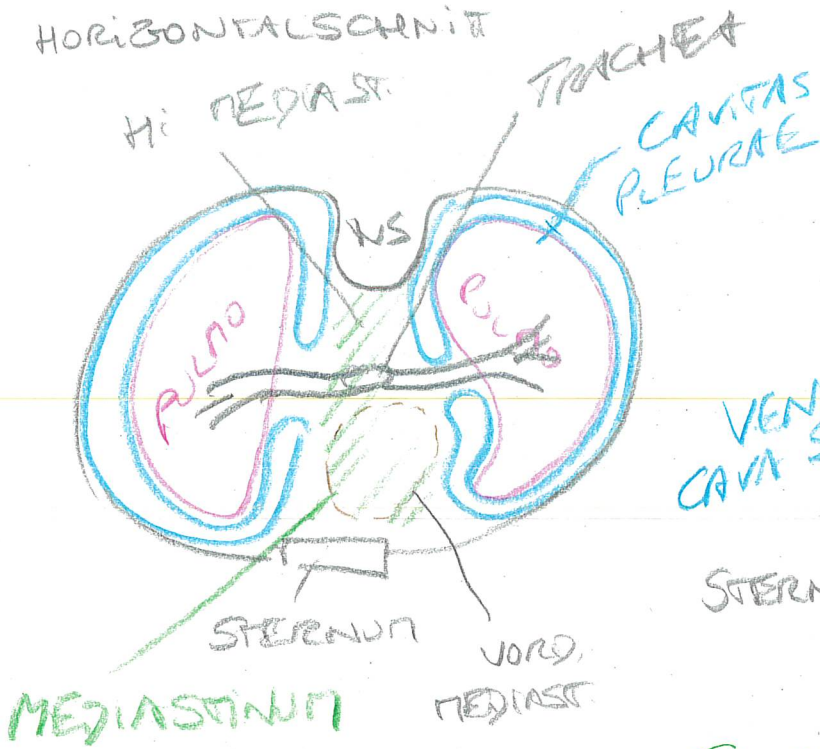 HORIZONTALSCHNITT
Hi MEDIAST.
TRACHEA
CAVITAS
PLEURAE
WS
PULMO
PULMO
VEN
CAVA S
STERN
STERNUM
VORD.
MEDIAST.
MEDIASTINUM